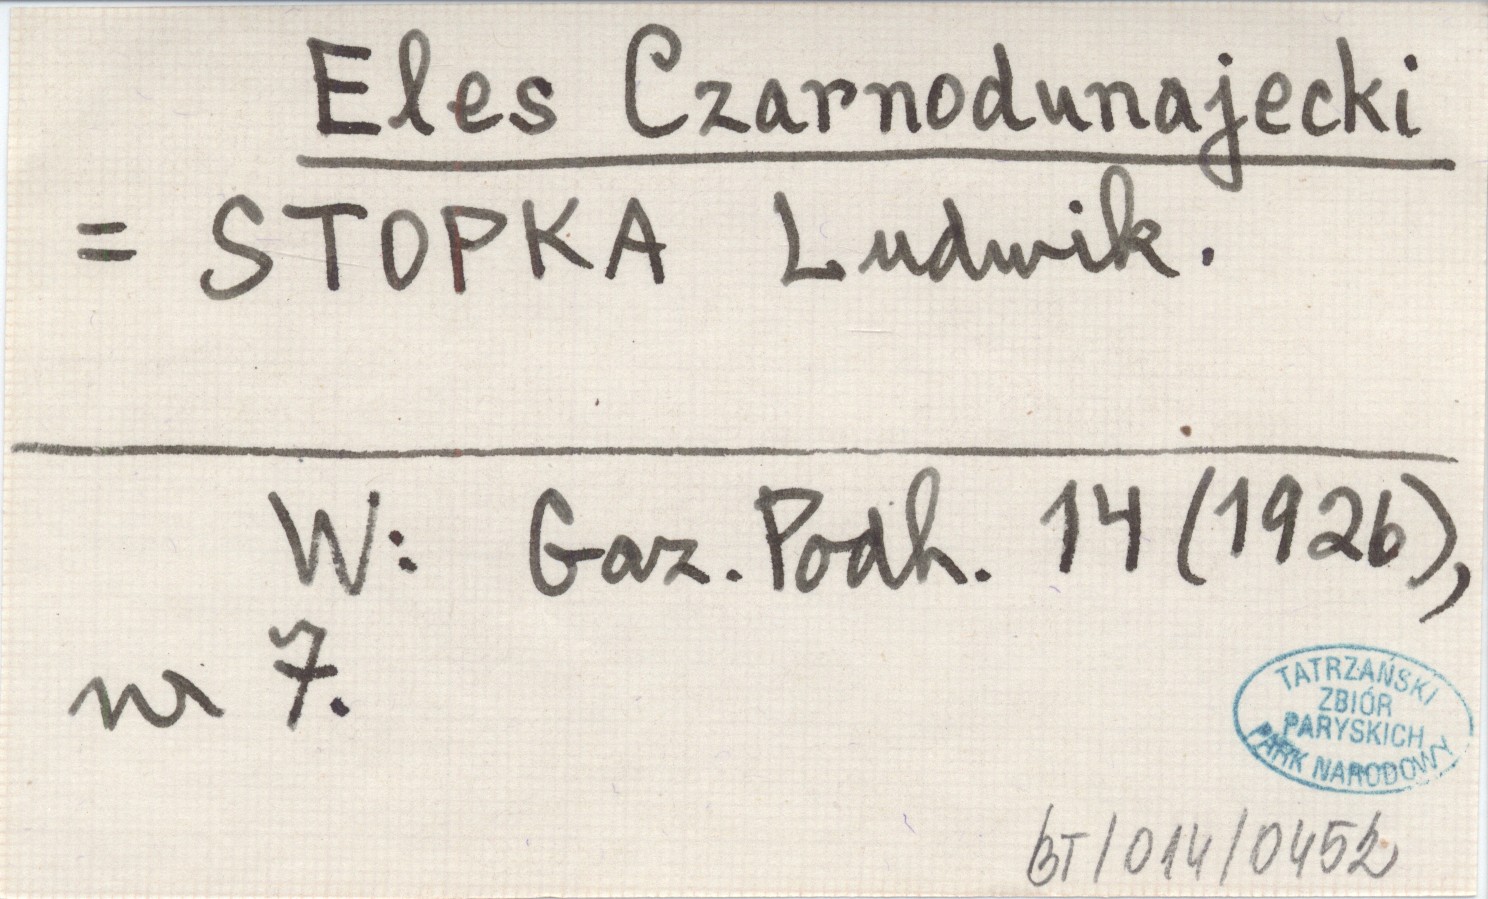 Eles Czarnodunajecki
= STOPKA Ludwik.
W: Gaz. Podh. 14 (1926),
nr 7.
TATRZAŃSKI
ZBIÓR
PARYSKICH
PARK NARODOWY
BT/014/0452